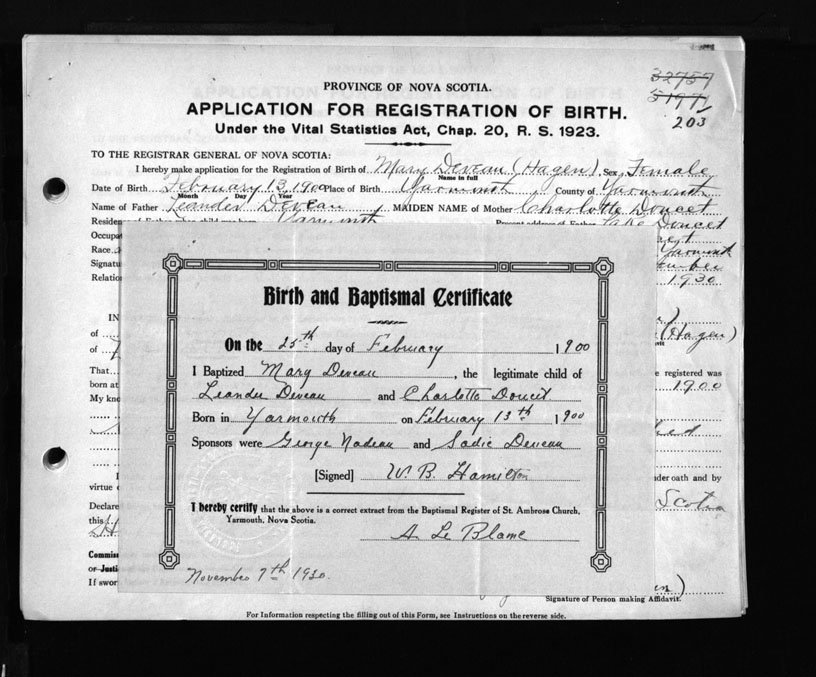 PROVINCE OF NOVA SCOTIA.
32757
51971
203
APPLICATION FOR REGISTRATION OF BIRTH.
Under the Vital Statistics Act, Chap. 20, R. S. 1923.
TO THE REGISTRAR GENERAL OF NOVA SCOTIA:
I hereby make application for the Registration of Birth of Mary Deveau (Hagen), Sex Female
Name in full
Date of Birth February 13 1900 Place of Birth Yarmouth County of Yarmouth
Month Day Year
Name of Father Leander Deveau, MAIDEN NAME of Mother Charlotte Doucet
Yarmouth Present address of Father Lake Doucet
Occupat
Race Yarmouth
Signatu
Relation 1930
IN
of (Hagen)
of
That e registered was
born at 1900
My kno
nder oath and by
virtue o
Declare Scotia
this
Commis
or Justi
If swor
Signature of Person making Affidavit.
For Information respecting the filling out of this Form, see Instructions on the reverse side.
Birth and Baptismal Certificate
On the 25th day of February 1900
I Baptized Mary Deveau, the legitimate child of
Leander Deveau and Charlotte Doucet
Born in Yarmouth on February 13th 1900
Sponsors were George Nadeau and Sadie Deveau
[Signed] W. B. Hamilton
I hereby certify that the above is a correct extract from the Baptismal Register of St. Ambrose Church,
Yarmouth, Nova Scotia.
A Le Blanc
November 7th 1930.